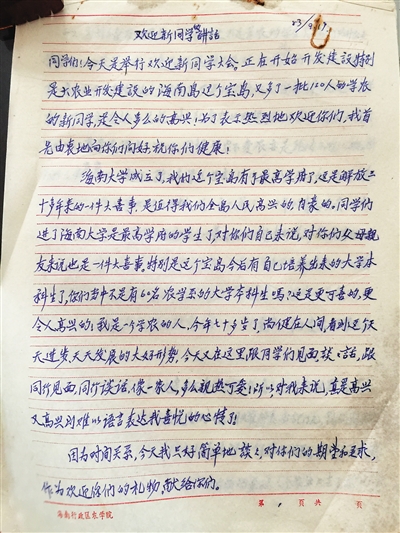 83/9/17
欢迎新同学的讲话
同学们!今天是举行欢迎新同学大会。正在开始开发建设特别
是大农业开发建设的海南岛这个宝岛,又多了一批120人的学农
的新同学,是令人多么的高兴!为了表示热烈地欢迎你们,我首
先由衷地向你们问好,祝你们健康!
海南大学成立了,我们这个宝岛有了最高学府了,这是解放三
十多年来的一件大喜事,是值得我们全岛人民高兴的,自豪的。同学们
进了海南大学是最高学府的学生了,对你们自己来说,对你们父母親
友来说也是一件大喜事,特别是这个宝岛今后有自己培养出来的大学本
科生了,你们当中不是有60名农学系的大学本科生吗?这是更可喜的,更
令人高兴的!我是一个学农的人,今年七十多岁了,尚健在人间,看到这个天
天进步天天发展的大好形势,今天又在这里跟同学们见面談談話,跟
同行见面,同行谈话,像一家人,多么親熱可爱!所以对我来说,真是高兴
又高兴到难以语言表达我喜悦的心情了!
因为时间关系,今天我只好简单地談談,对你们的期望和要求,
作为欢迎你们的礼物,献给你们。
海南行政区农学院
第 页共 页